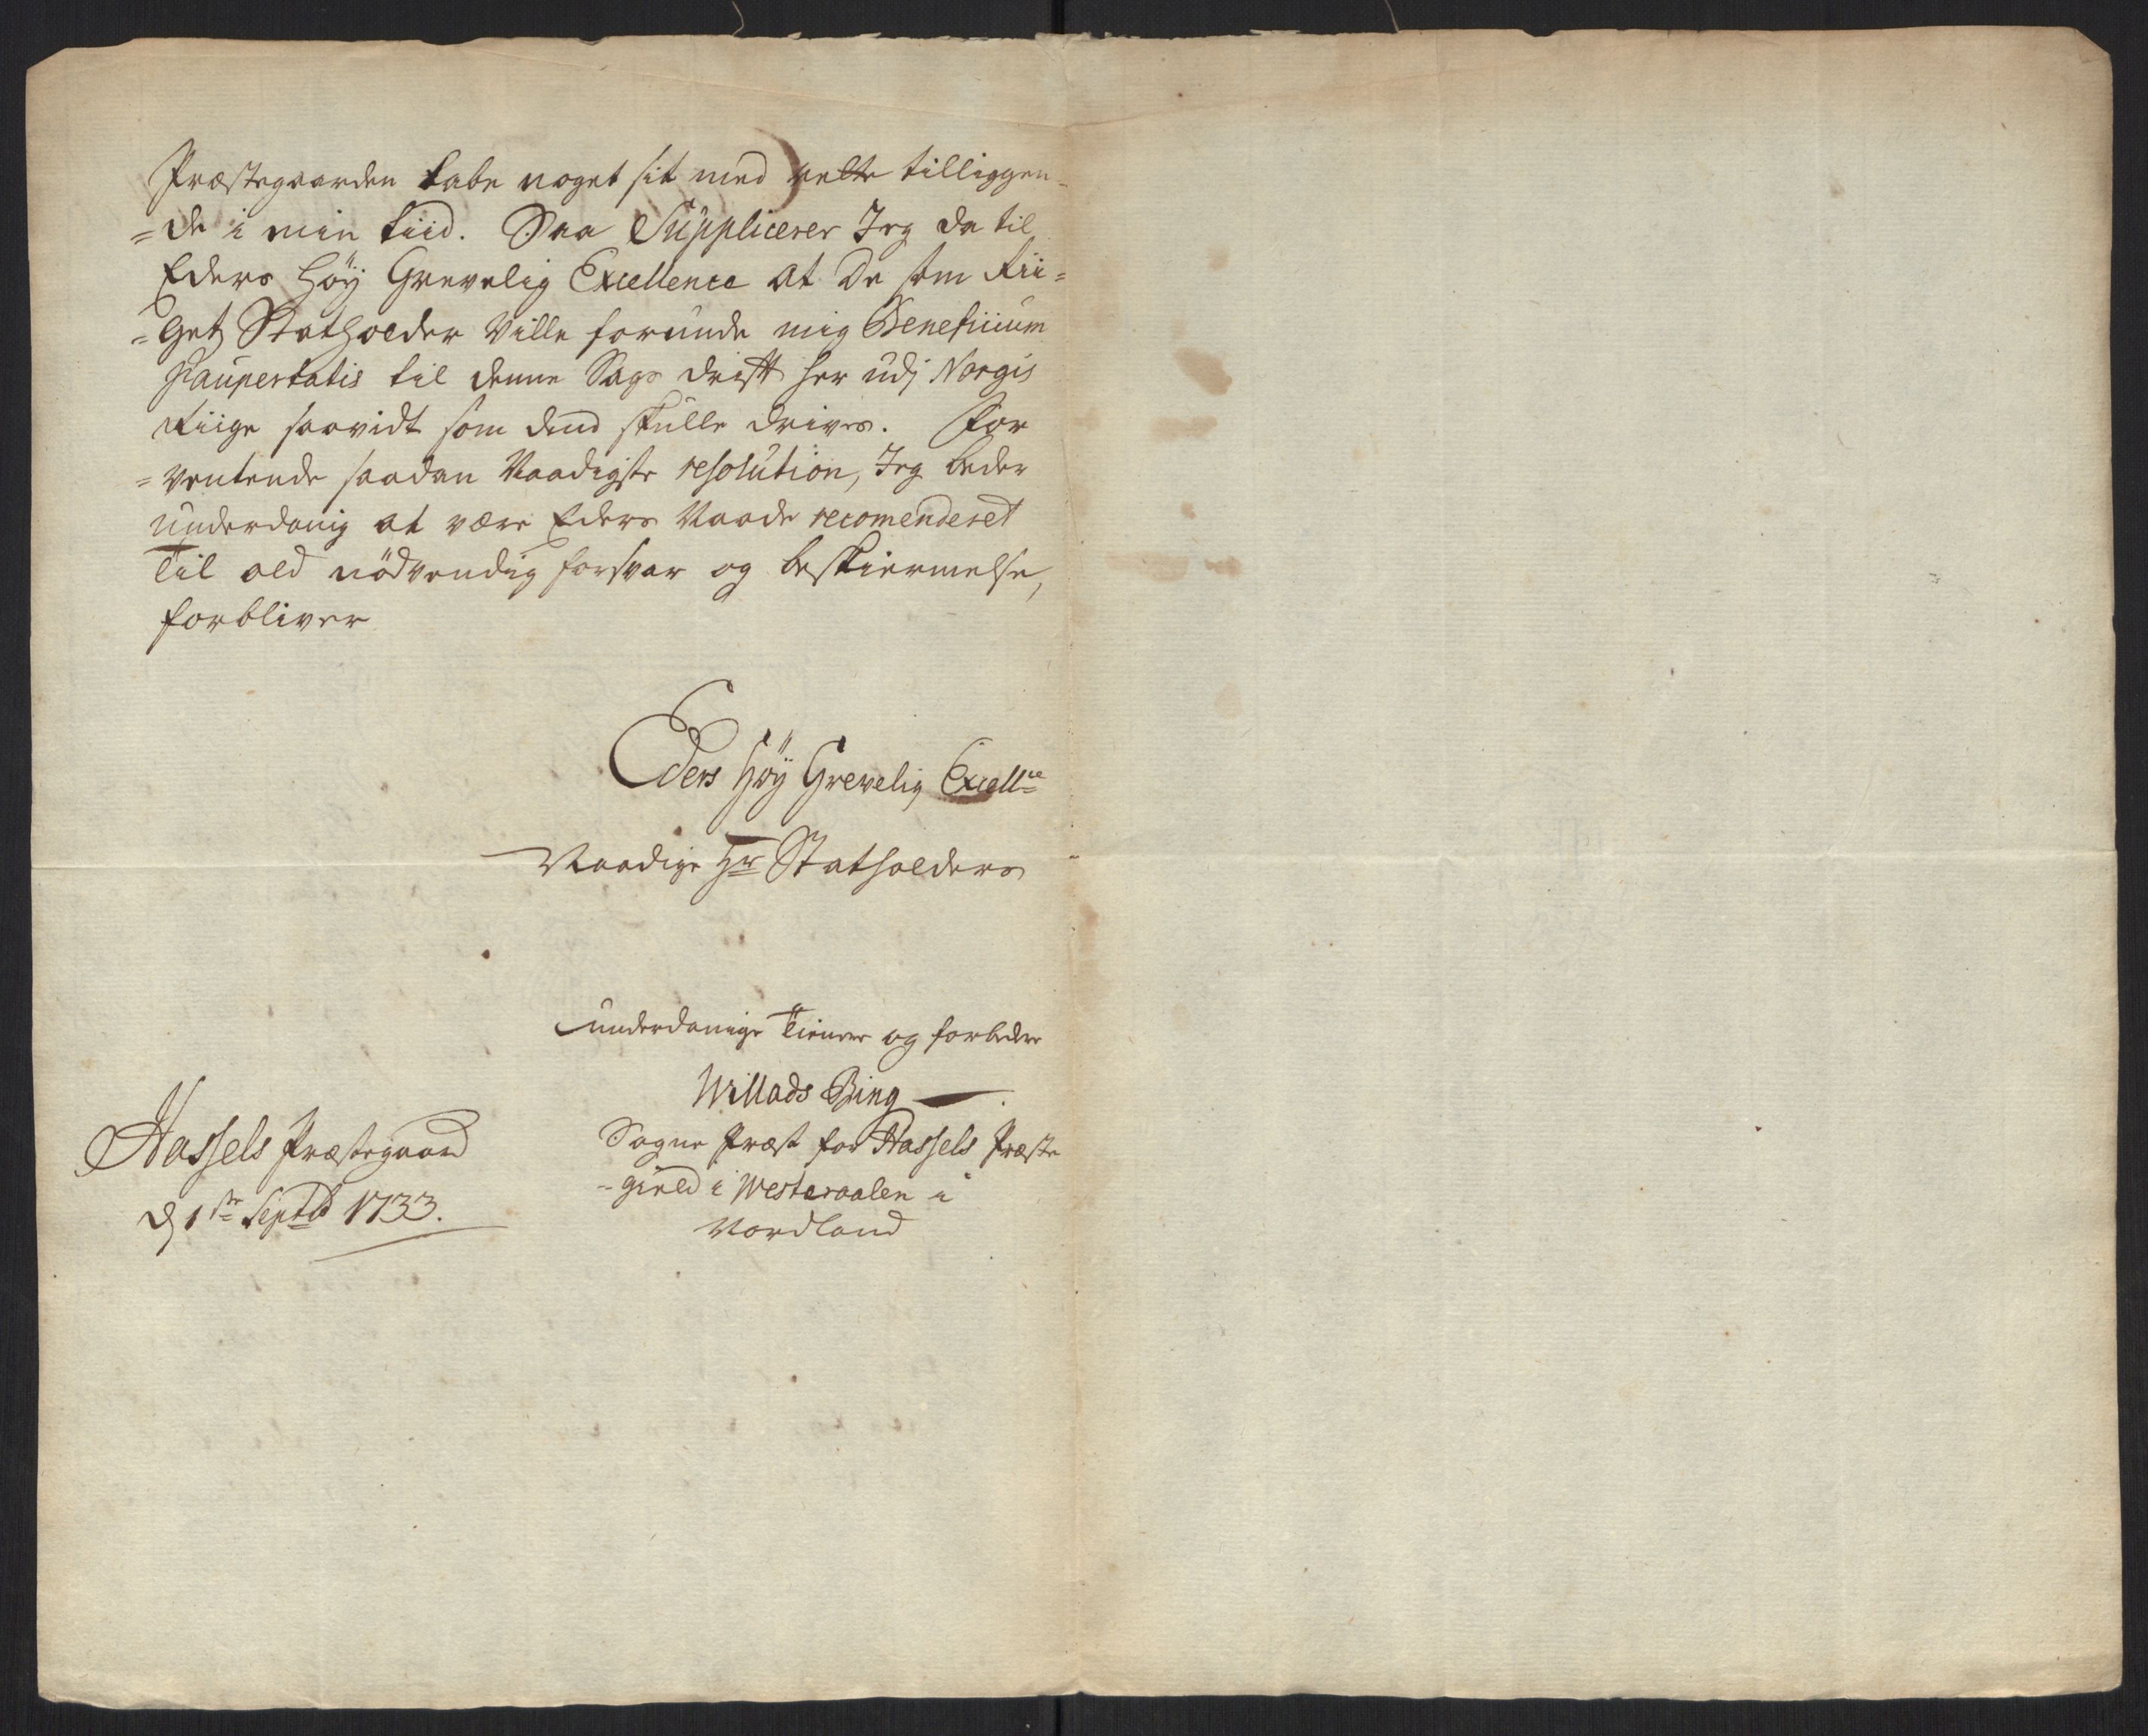 Præstegaarden tabe noget sit med rette tilliggen-
=de i min tiid. Saa Suppliceres Jeg da til
Eders Høÿ Grevelig Excellence at De som Rii=
=gets Statholder Ville forunde mig Beneficium
Paupertatis til denne Sags drift her udj Norgis
Riige saavidt som dend skulle drives. For
=ventende saadan Naadigste resolution, Jeg beder
underdanig at være Eders Naade recomenderet
Til ald nödvendig forsvar og beskiermelse,
forbliver
Eders Høÿ Grevelig Excell:ce
Naadige Hr Statholders
underdanige Tienere og forbedere
Willads Bing
Sogne Præst for Hassels Præste
-gield i Westeraalen i
Nordland
Hassels Præstegaard
d 1ste Septb 1733.